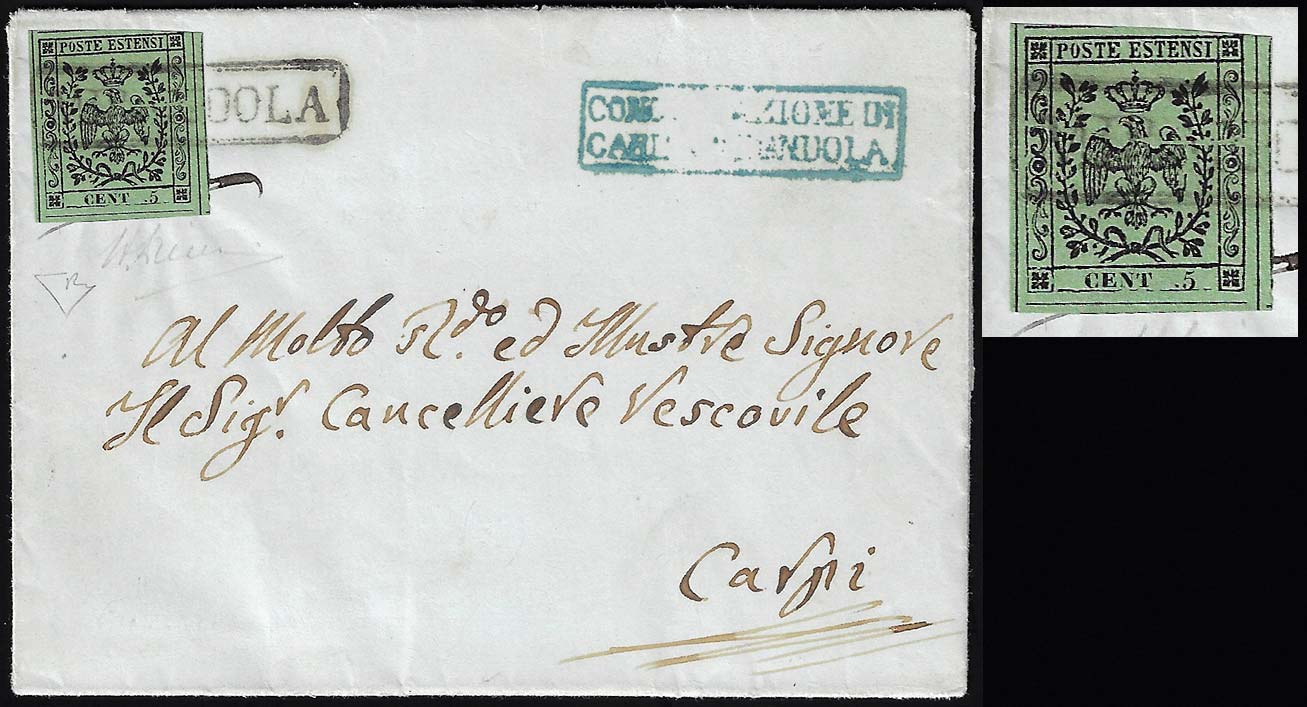 POSTE ESTENSI
CENT .5
DOLA
COM ZIONE DI
CA ANDOLA
Al Molto R.do ed Illustre Signore
Il Sigr. Cancelliere Vescovile
Carpi
POSTE ESTENSI
CENT .5